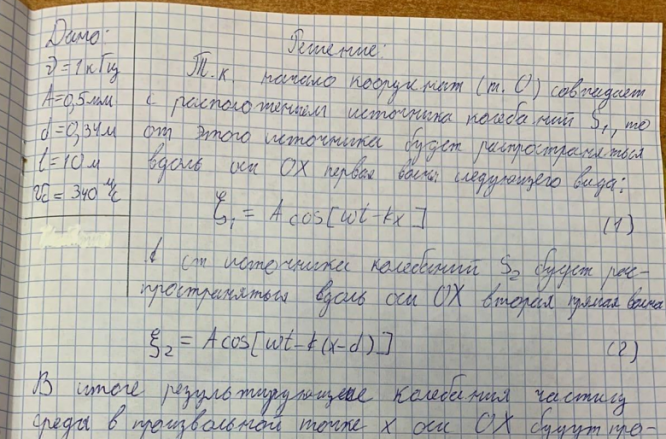 Дано:
ν = 1 кГц
A = 0,5 мм
d = 0,34 м
l = 10 м
v = 340 м/с
Решение:
Т.к. начало координат (т. O) совпадает
с расположением источника колебаний S₁, то
от этого источника будет распространяться
вдоль оси OX первая волна следующего вида:
ξ₁ = A cos[ωt - kx] (1)
А от источника колебаний S₂ будет рас-
пространяться вдоль оси OX вторая прямая волна
ξ₂ = A cos[ωt - k(x - d)] (2)
В итоге результирующие колебания частиц
среды в произвольной точке x оси OX будут про-